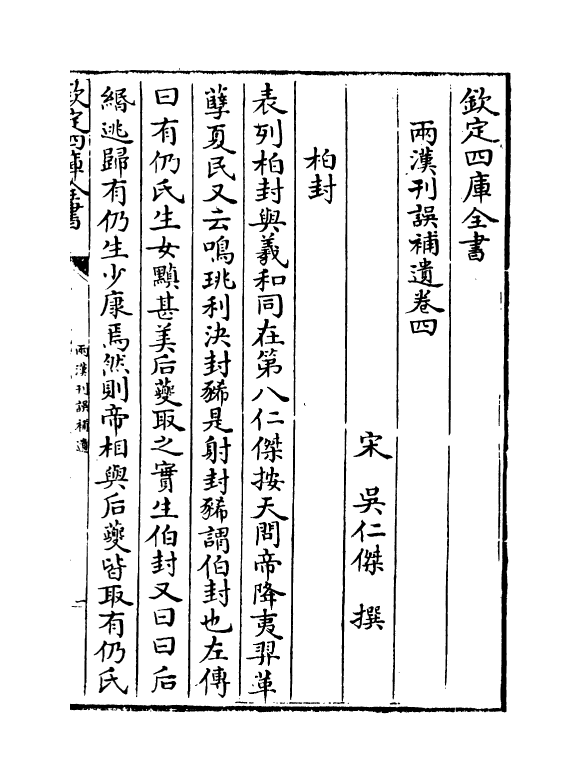 欽定四庫全書
兩漢刊誤補遺卷四
宋 吳仁傑 撰
柏封
表列柏封與羲和同在第八仁傑按天問帝降夷羿革
孽夏民又云馮珧利決封豨是射封豨謂伯封也左傳
曰有仍氏生女黰甚美后夔取之實生伯封又曰曰后
緡逃歸有仍生少康焉然則帝相與后夔皆取有仍氏
欽定四庫全書
兩漢刊誤補遺
一